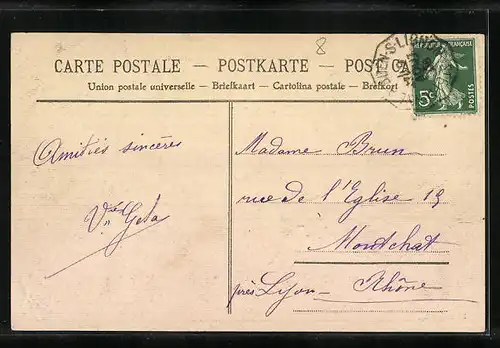 8
CARTE POSTALE — POSTKARTE — POST
Union postale universelle — Briefkaart — Cartolina postale — Brefkort
FRANÇAISE
POSTES
5c
Amitiés sincères
Madame Brun
rue de l'Eglise 19
Montchat
près Lyon - Rhône